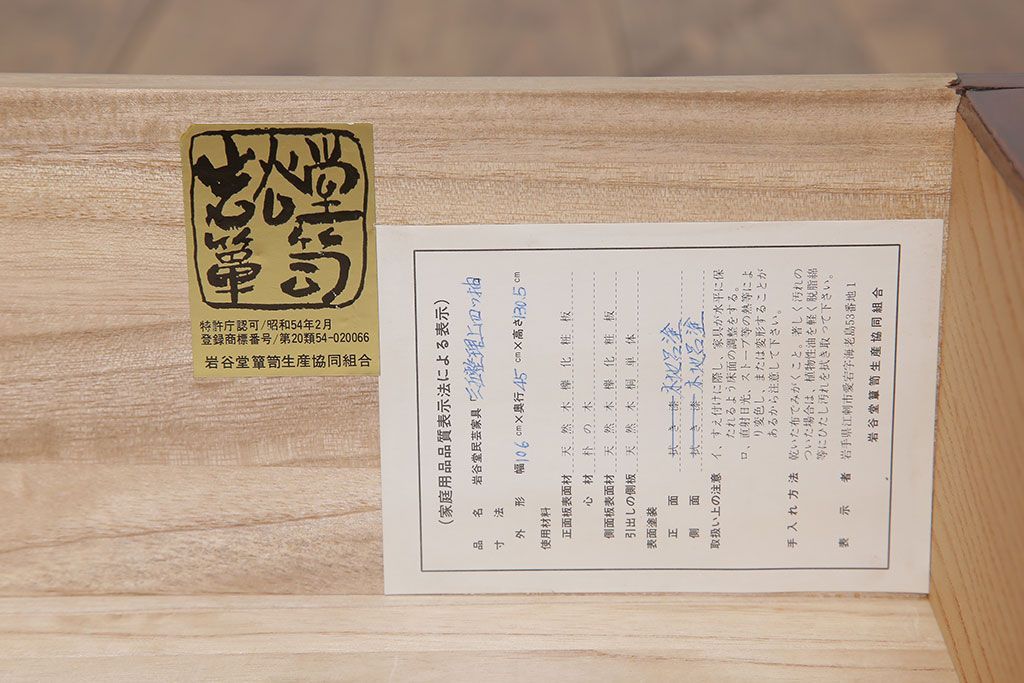 岩谷堂
箪笥
特許庁認可/昭和54年2月
登録商標番号/第20類54-020066
岩谷堂簞笥生産協同組合
(家庭用品品質表示法による表示)
品名 岩谷堂民芸家具 整理上四ッ抽
寸法
外形 幅106cm×奥行45cm×高さ130.5cm
使用材料
正面板表面材 天然木欅化粧板
心材 朴の木
側面板表面材 天然木欅化粧板
引出しの側板 天然木桐単体
表面塗装
正面 拭き漆 木地呂塗
側面 拭き漆 木地呂塗
取扱い上の注意 イ、すえ付けに際し、家具が水平に保
たれるよう床面の調整をする。
ロ、直射日光、ストーブ等の熱等によ
り変色し、または変形することが
あるから注意して下さい。
手入れ方法 乾いた布でみがくこと。著しく汚れの
ついた場合は、植物性油を軽く脱脂綿
等にひたし汚れを拭き取って下さい。
表示者 岩手県江刺市愛宕字海老島53番地1
岩谷堂簞笥生産協同組合